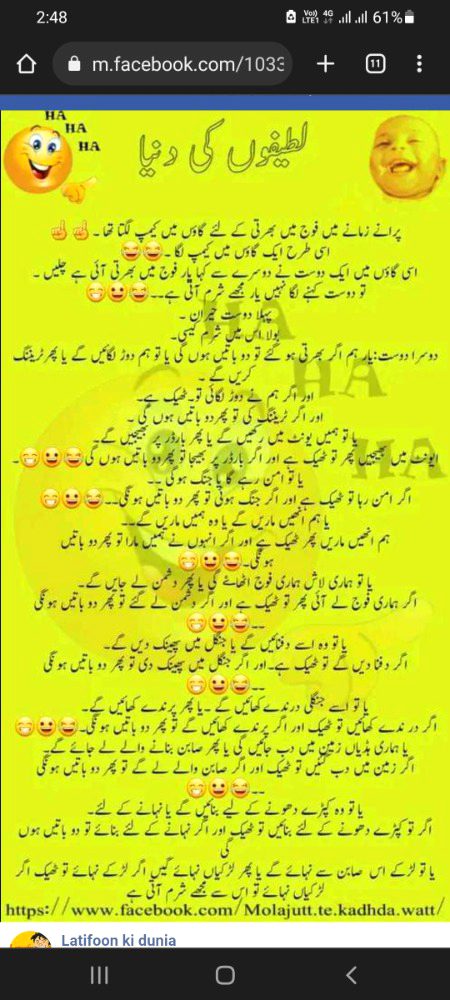 2:48
Vo)) 4G
LTE1
61%
m.facebook.com/1033
11
HA
HA
HA
لطیفوں کی دنیا
پرانے زمانے میں فوج میں بھرتی کے لئے گاؤں میں کیمپ لگتا تھا ۔ ☝☝
اسی طرح ایک گاؤں میں کیمپ لگا ۔😅😅
اسی گاؤں میں ایک دوست نے دوسرے سے کہا یار فوج میں بھرتی آئی ہے چلیں ۔
تو دوست کہنے لگا نہیں یار مجھے شرم آتی ہے۔۔😅😃😁
پہلا دوست حیران ۔
بولا اس میں شرم کیسی۔
دوسرا دوست:یار ہم اگر بھرتی ہو گئے تو دو باتیں ہوں گی یا تو ہم دوڑ لگائیں گے یا پھر ٹریننگ
کریں گے ۔
اور اگر ہم نے دوڑ لگائی تو۔ٹھیک ہے۔
اور اگر ٹریننگ کی تو پھر دو باتیں ہوں گی ۔
یا تو ہمیں یونٹ میں رکھیں گے یا پھر بارڈر پر بھیجیں گے۔
یونٹ میں بھیجیں پھر تو ٹھیک ہے اور اگر بارڈر پر بھیجا تو پھر دو باتیں ہوں گی😅😃😁۔
یا تو امن رہے گا یا جنگ ہوگی ۔۔
اگر امن رہا تو ٹھیک ہے اور اگر جنگ ہوئی تو پھر دو باتیں ہونگی۔۔😅😃😁
یا ہم انھیں ماریں گے یا وہ ہمیں ماریں گے۔۔
ہم انھیں ماریں پھر ٹھیک ہے اور اگر انہوں نے ہمیں مارا تو پھر دو باتیں
ہونگی۔😅😃😁
یا تو ہماری لاش ہماری فوج اٹھائے گی یا پھر دشمن لے جایں گے۔
اگر ہماری فوج لے آئی پھر تو ٹھیک ہے اور اگر دشمن لے گئے تو پھر دو باتیں ہونگی
۔۔😅😃😁
یا تو وہ اسے دفنائیں گے یا جنگل میں پھینک دیں گے۔
اگر دفنا دیں گے تو ٹھیک ہے۔اور اگر جنگل میں پھینک دی تو پھر دو باتیں ہونگی
۔۔😅😃😁
یا تو اسے جنگلی درندے کھائیں گے ۔یا پھر پرندے کھائیں گے۔
اگر درندے کھائیں تو ٹھیک اور اگر پرندے کھائیں گے تو پھر دو باتیں ہونگی۔😅😃😁
یا ہماری ہڈیاں زمین میں دب جائیں گی یا پھر صابن بنانے والے لے جائے گے۔
اگر زمین میں دب گئیں تو ٹھیک اور اگر صابن والے لے گے تو پھر دو باتیں ہونگی
۔۔😅😃😁
یا تو وہ کپڑے دھونے کے لیے بنائیں گے یا نہانے کے لئے۔
اگر تو کپڑے دھونے کے لئے بنائیں تو ٹھیک اور اگر نہانے کے لئے بنائے تو دو باتیں ہوں
گی
یا تو لڑکے اس صابن سے نہائے گے یا پھر لڑکیاں نہائے گیں اگر لڑکے نہائے تو ٹھیک اگر
لڑکیاں نہائے تو اس سے مجھے شرم آتی ہے
https://www.facebook.com/Molajutt.te.kadhda.watt/
Latifoon ki dunia